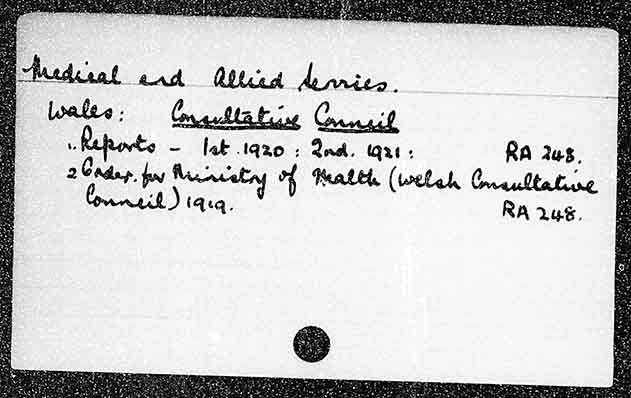 Medical and Allied Services.
Wales: Consultative Council
1. Reports – 1st. 1920 : 2nd. 1921 : RA 248.
2 Order. for Ministry of Health (Welsh Consultative
Council) 1919. RA 248.